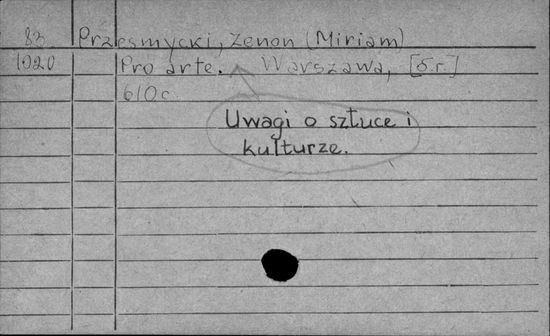 83 Przesmycki, Zenon (Miriam)
1020 Pro arte. Warszawa, [b.r.]
610c
Uwagi o sztuce i
kulturze.